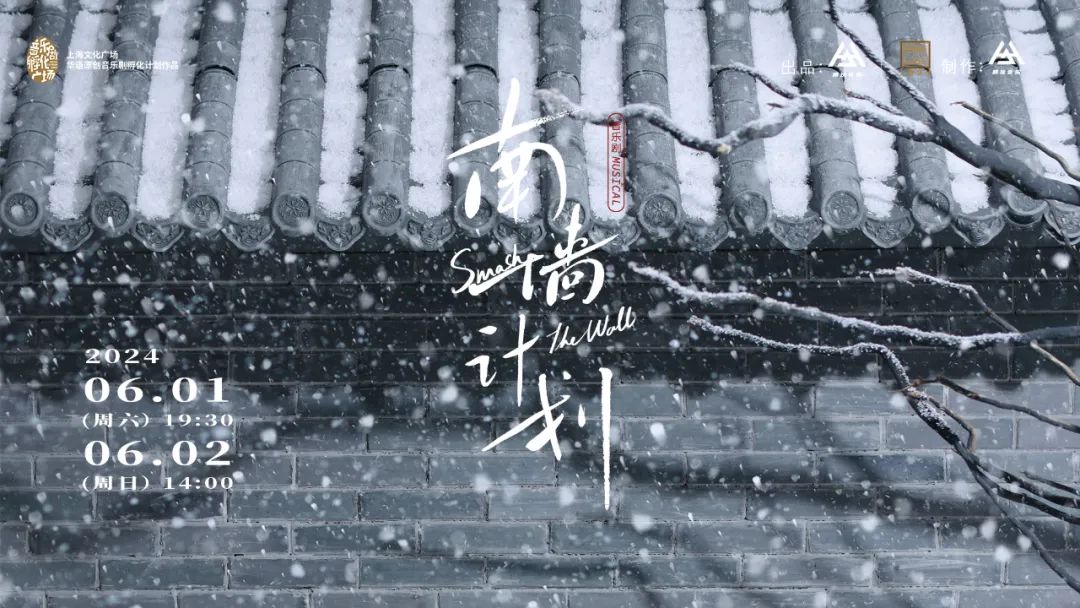 音乐剧
孵化
广场
上海文化广场
华语原创音乐剧孵化计划作品
出品：
制作：
南墙计划
音乐剧 MUSICAL
Smash
The Wall
2024
06.01
(周六) 19:30
06.02
(周日) 14:00